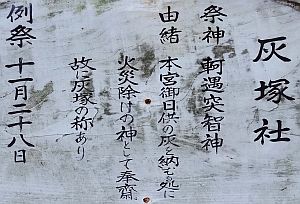 灰塚社
祭神 軻遇突智神
由緒 本宮御日供の灰を納むる処に
火災除けの神として奉齋
故に灰塚の称あり
例祭 十一月二十八日